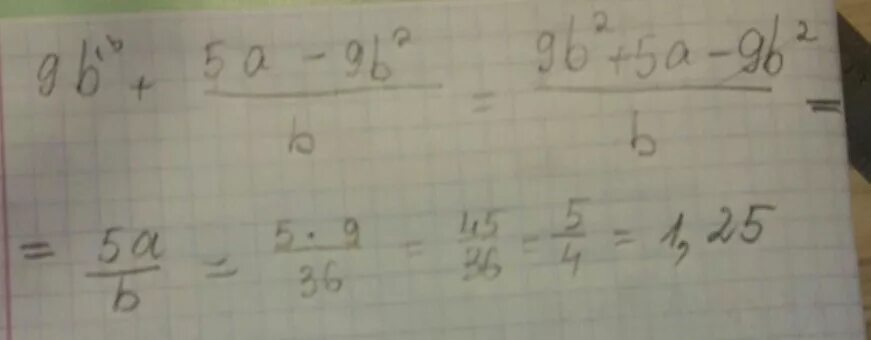 9b^{\b} + \frac{5a - 9b^2}{b} = \frac{9b^2 + 5a - 9b^2}{b} =
= \frac{5a}{b} = \frac{5 \cdot 9}{36} = \frac{45}{36} = \frac{5}{4} = 1,25